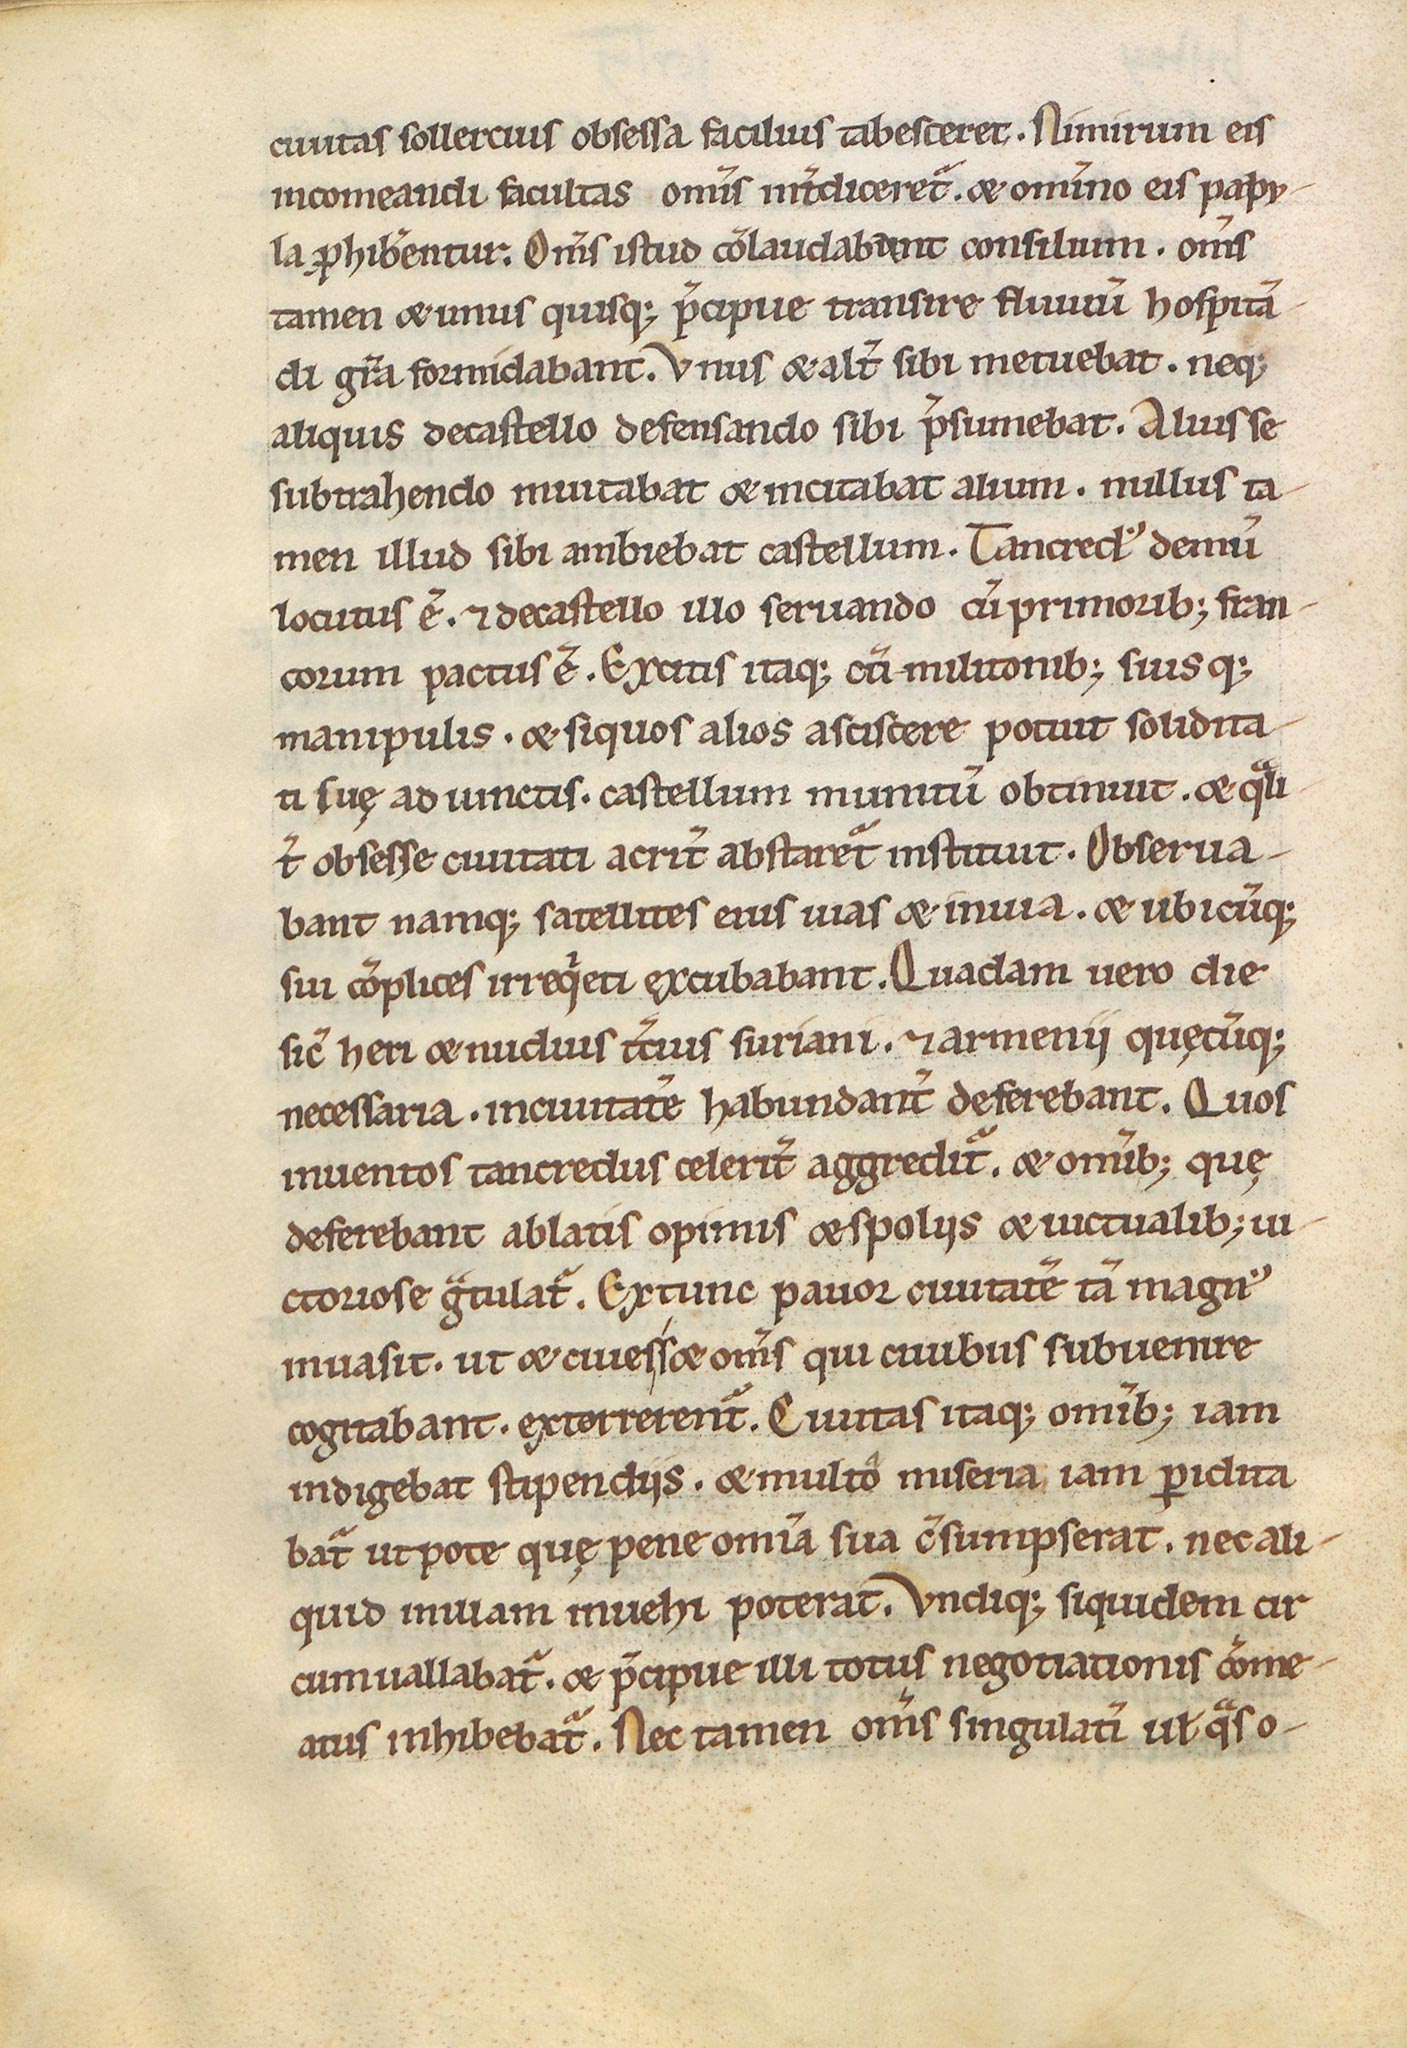 ciuitas sollercius obsessa facilius tabesceret. Nimirum eis
incomeandi facultas om̄s int̄diceret᷑. & omīno eis papy-
la ꝓhibentur. Om̄s istud cōlaudabant consilium. om̄s
tamen & unus quisq; p̄cipue transire fluuiū hospitā-
di gr̄a formidabant. Vnus & alt̄ sibi metuebat. neq;
aliquis decastello defensando sibi p̄sumebat. Alius se
subtrahendo inuitabat & incitabat alium. nullus ta-
men illud sibi ambiebat castellum. Tancred᾽ demū
locutus ē. ⁊ decastello illo seruando cū primorib; fran-
corum pactus ē. Excitis itaq; cū militonib; suisq;
manipulis. & siquos alios asciscere potuit solidita-
ti suę ad iunctis. castellum munitū obtinuit. & qͣli-
t̄ obsesse ciuitati acrit̄ abstaret᷑ instituit. Obserua-
bant namq; satellites eius uias & inuia. & ubicūq;
sui cōplices irreqͥeti excubabant. Quadam uero die
sic̄ heri & nudius t̄cius suriani. ⁊ armenij quęcūq;
necessaria. inciuitatē habundant̄ deferebant. Quos
inuentos tancredus celerit̄ aggredit᷑. & omīb; quę
deferebant ablatis opimis & spolijs & uictualib; ui-
ctoriose gͣtulat᷑. Extunc pauor ciuitatē tā magn᾽
inuasit. ut & ciues & om̄s qui ciuibus subuenire
cogitabant. exterrerent᷑. Ciuitas itaq; omīb; iam
indigebat stipendijs. & multo miseria iam ꝑidita
bat᷑ ut pote quę pene omīa sua c̄sumpserat. nec ali-
quid inuiam inuehi poterat. Vndiq; siquidem cir
cumuallabat᷑. & p̄cipue illi totus negotiationis cōme-
atus inhibebat᷑. Nec tamen om̄s singulatī uł qͣs o-